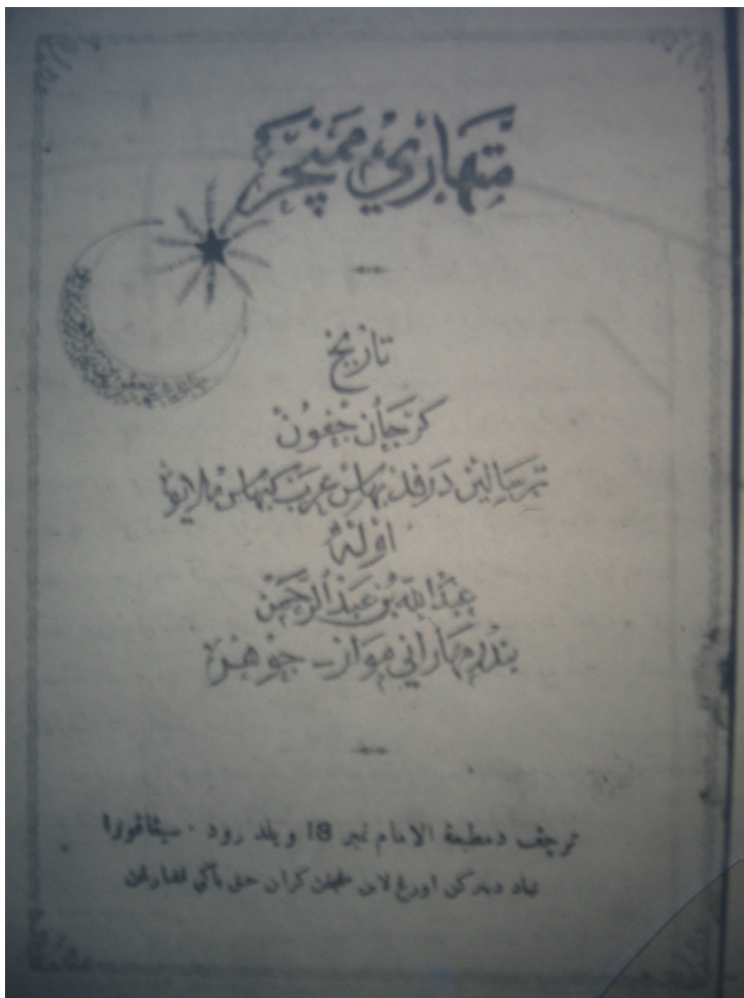 متهاري ممنچر
تاريخ
کرجأن جڤون
ترسالين درڤد بهاس عرب کبهاس ملايو
اوله
عبد الله بن عبد الرحمن
بندر مهاراني موار - جوهر
ترچڤ دمطبعة الامام نمبر 18 ويلد رود . سيڠاڤورا
تياد دبنرکن اورڠ لاين